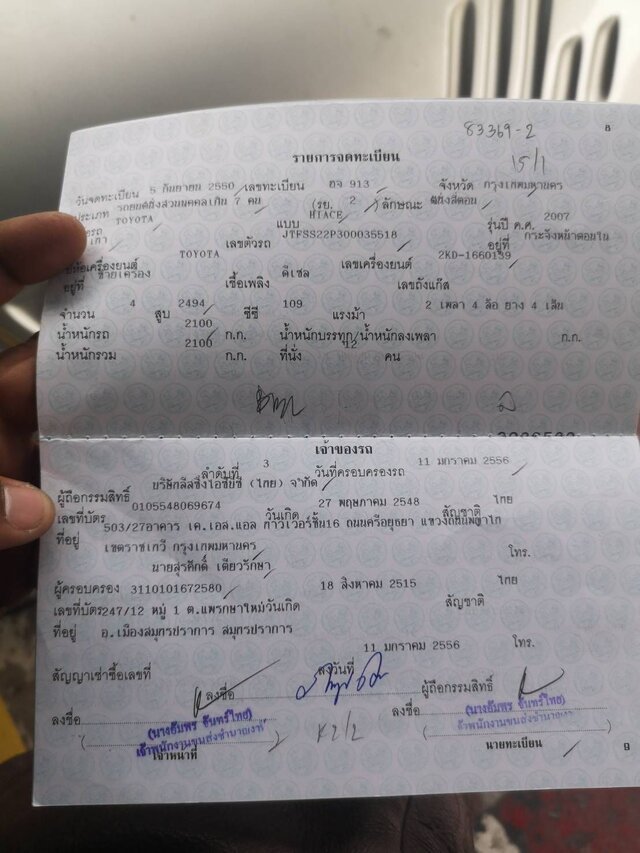 83369-2
8
รายการจดทะเบียน
15/1
วันจดทะเบียน 5 กันยายน 2550 เลขทะเบียน ฮจ 913 จังหวัด กรุงเทพมหานคร
ประเภท รถยนต์นั่งส่วนบุคคลเกิน 7 คน (รย. 2 ) ลักษณะ
TOYOTA แบบ HIACE รุ่นปี ค.ศ. 2007
เลขตัวรถ JTFSS22P300035518 อยู่ที่
ยี่ห้อเครื่องยนต์ TOYOTA เลขเครื่องยนต์ 2KD-1660139
อยู่ที่ เชื้อเพลิง ดีเซล เลขถังแก๊ส
จำนวน 4 สูบ 2494 ซีซี 109 แรงม้า 2 เพลา 4 ล้อ ยาง 4 เส้น
น้ำหนักรถ 2100 ก.ก. น้ำหนักบรรทุก/น้ำหนักลงเพลา ก.ก.
น้ำหนักรวม 2100 ก.ก. ที่นั่ง 12 คน
เจ้าของรถ
ลำดับที่ 3 วันที่ครอบครองรถ 11 มกราคม 2556
ผู้ถือกรรมสิทธิ์ บริษัทลีสซิ่งไอซีบีซี (ไทย) จำกัด
เลขที่บัตร 0105548069674 วันเกิด 27 พฤษภาคม 2548 สัญชาติ ไทย
ที่อยู่ 503/27อาคาร เค.เอส.แอล ทาวเวอร์ชั้น16 ถนนศรีอยุธยา แขวงถนนพญาไท
เขตราชเทวี กรุงเทพมหานคร โทร.
ผู้ครอบครอง นายสุรศักดิ์ เตียวรักษา
เลขที่บัตร 3110101672580 วันเกิด 18 สิงหาคม 2515 สัญชาติ ไทย
ที่อยู่ 247/12 หมู่ 1 ต.แพรกษาใหม่
อ.เมืองสมุทรปราการ สมุทรปราการ โทร.
สัญญาเช่าซื้อเลขที่ ลงวันที่ 11 มกราคม 2556
ลงชื่อ ผู้ถือกรรมสิทธิ์
ลงชื่อ ลงชื่อ
(นางอัมพร จันทร์ไทย) (นางอัมพร จันทร์ไทย)
เจ้าพนักงานขนส่งชำนาญงาน เจ้าพนักงานขนส่งชำนาญงาน
เจ้าหน้าที่ นายทะเบียน
9